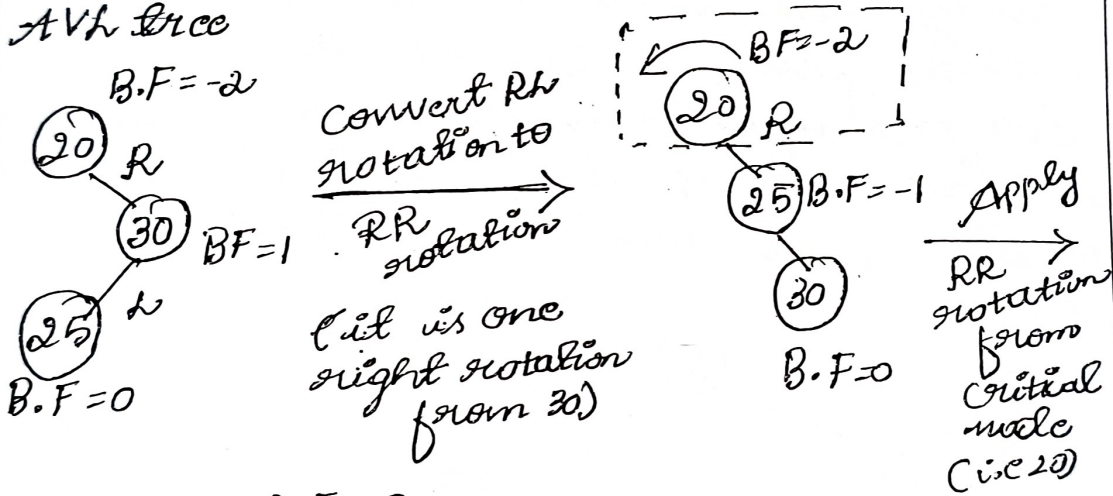 AVL tree
B.F = -2
20
R
30
BF = 1
L
25
B.F = 0
Convert RL
rotation to
RR
rotation
(it is one
right rotation
from 30)
BF = -2
20
R
25
B.F = -1
30
B.F = 0
Apply
RR
rotation
from
critical
node
(i.e 20)